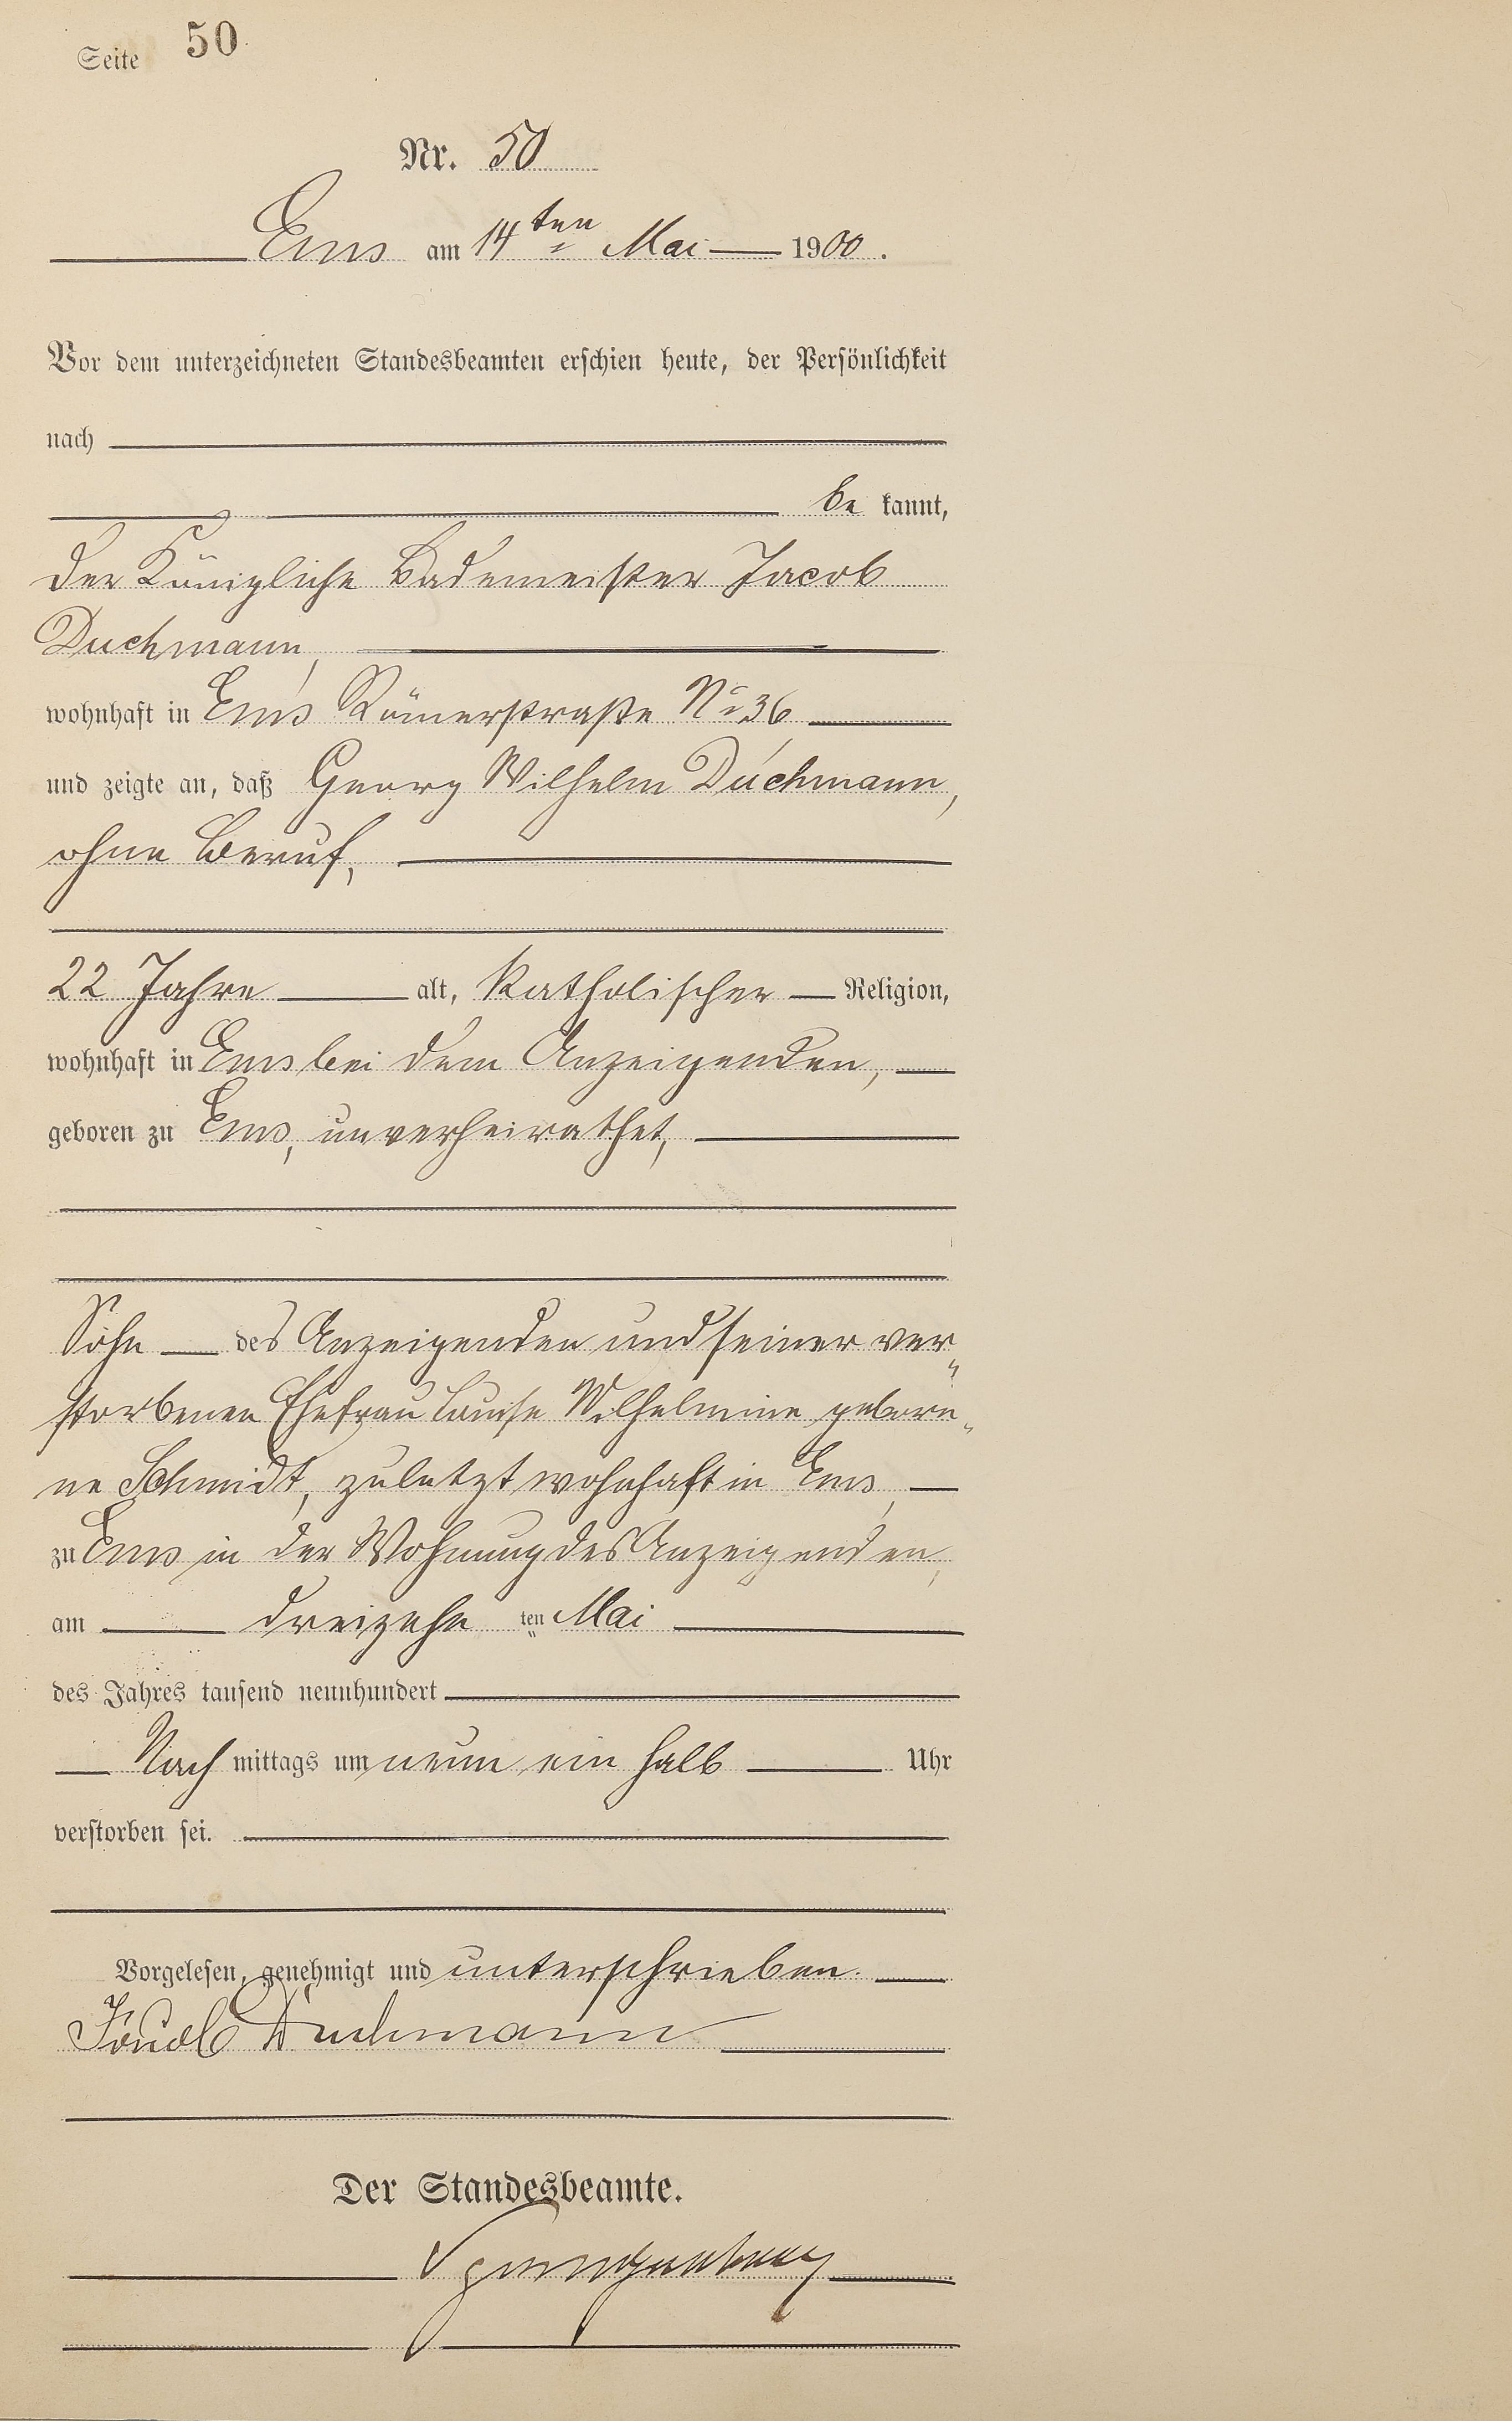 Seite 50
Nr. 50
Ems am 14ten Mai 1900.
Vor dem unterzeichneten Standesbeamten erschien heute, der Persönlichkeit
nach
be kannt,
der Königliche Bademeister Jacob
Duchmann,
wohnhaft in Ems Römerstraße No 36
und zeigte an, daß Georg Wilhelm Duchmann,
ohne Beruf,
22 Jahre alt, katholischer Religion,
wohnhaft in Ems bei dem Anzeigenden,
geboren zu Ems, unverheirathet,
Sohn des Anzeigenden und seiner ver„
storbenen Ehefrau Louise Wilhelmine gebore„
ne Schmidt, zuletzt wohnhaft in Ems,
zu Ems in der Wohnung des Anzeigenden,
am dreizehn ten Mai
des Jahres tausend neunhundert
Nach mittags um neun ein halb Uhr
verstorben sei.
Vorgelesen, genehmigt und unterschrieben.
Jacob Duchmann
Der Standesbeamte.